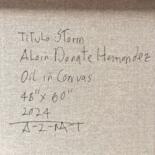 Titulo Storm
Alain Donate Hernandez
Oil in Canvas
48" x 60"
2024
A-Z-NA-T